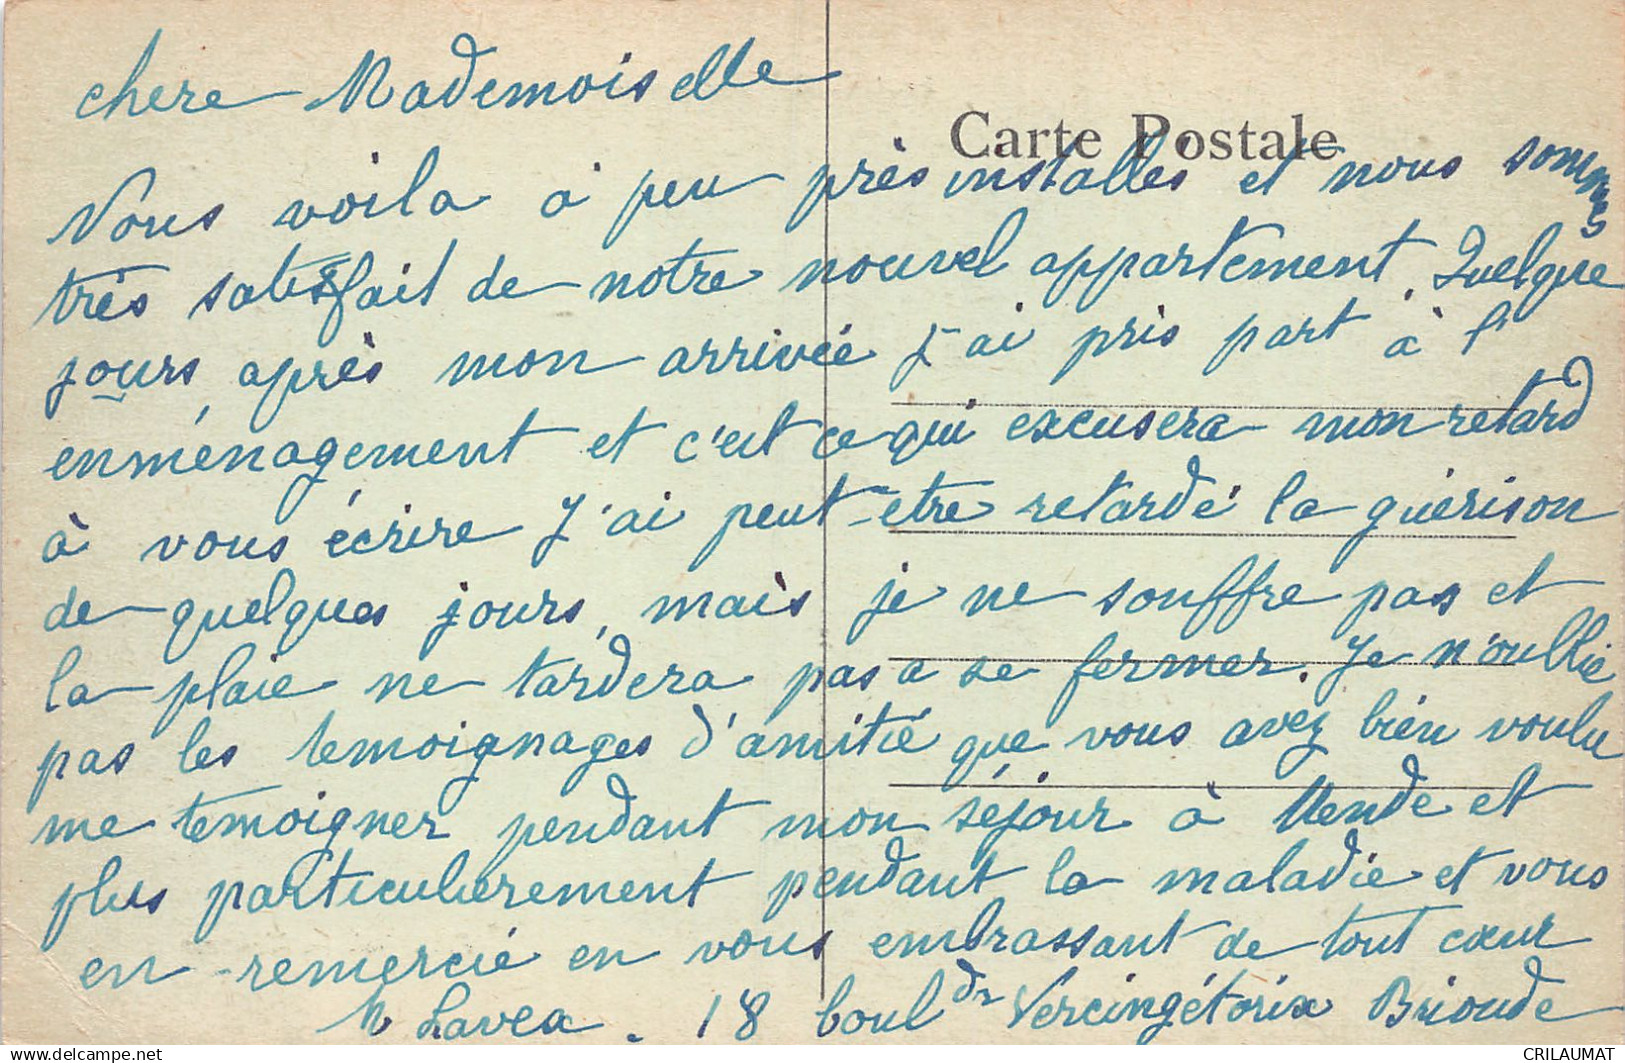 chere Mademoiselle
Carte Postale
Nous voila à peu près installés et nous sommes
très satisfait de notre nouvel appartement. Quelque
jours après mon arrivée j'ai pris part à l'
enménagement et c'est ce qui excusera mon retard
à vous écrire J'ai peut-etre retardé la guérison
de quelques jours, mais je ne souffre pas et
la plaie ne tardera pas a se fermer. Je n'oublie
pas les temoignages d'amitié que vous avez bien voulu
me temoigner pendant mon séjour à Mende et
plus particulierement pendant la maladie et vous
en remercié en vous embrassant de tout cœur
M Lavea. 18 boul dr Vercingétorix Brioude
CRILAUMAT